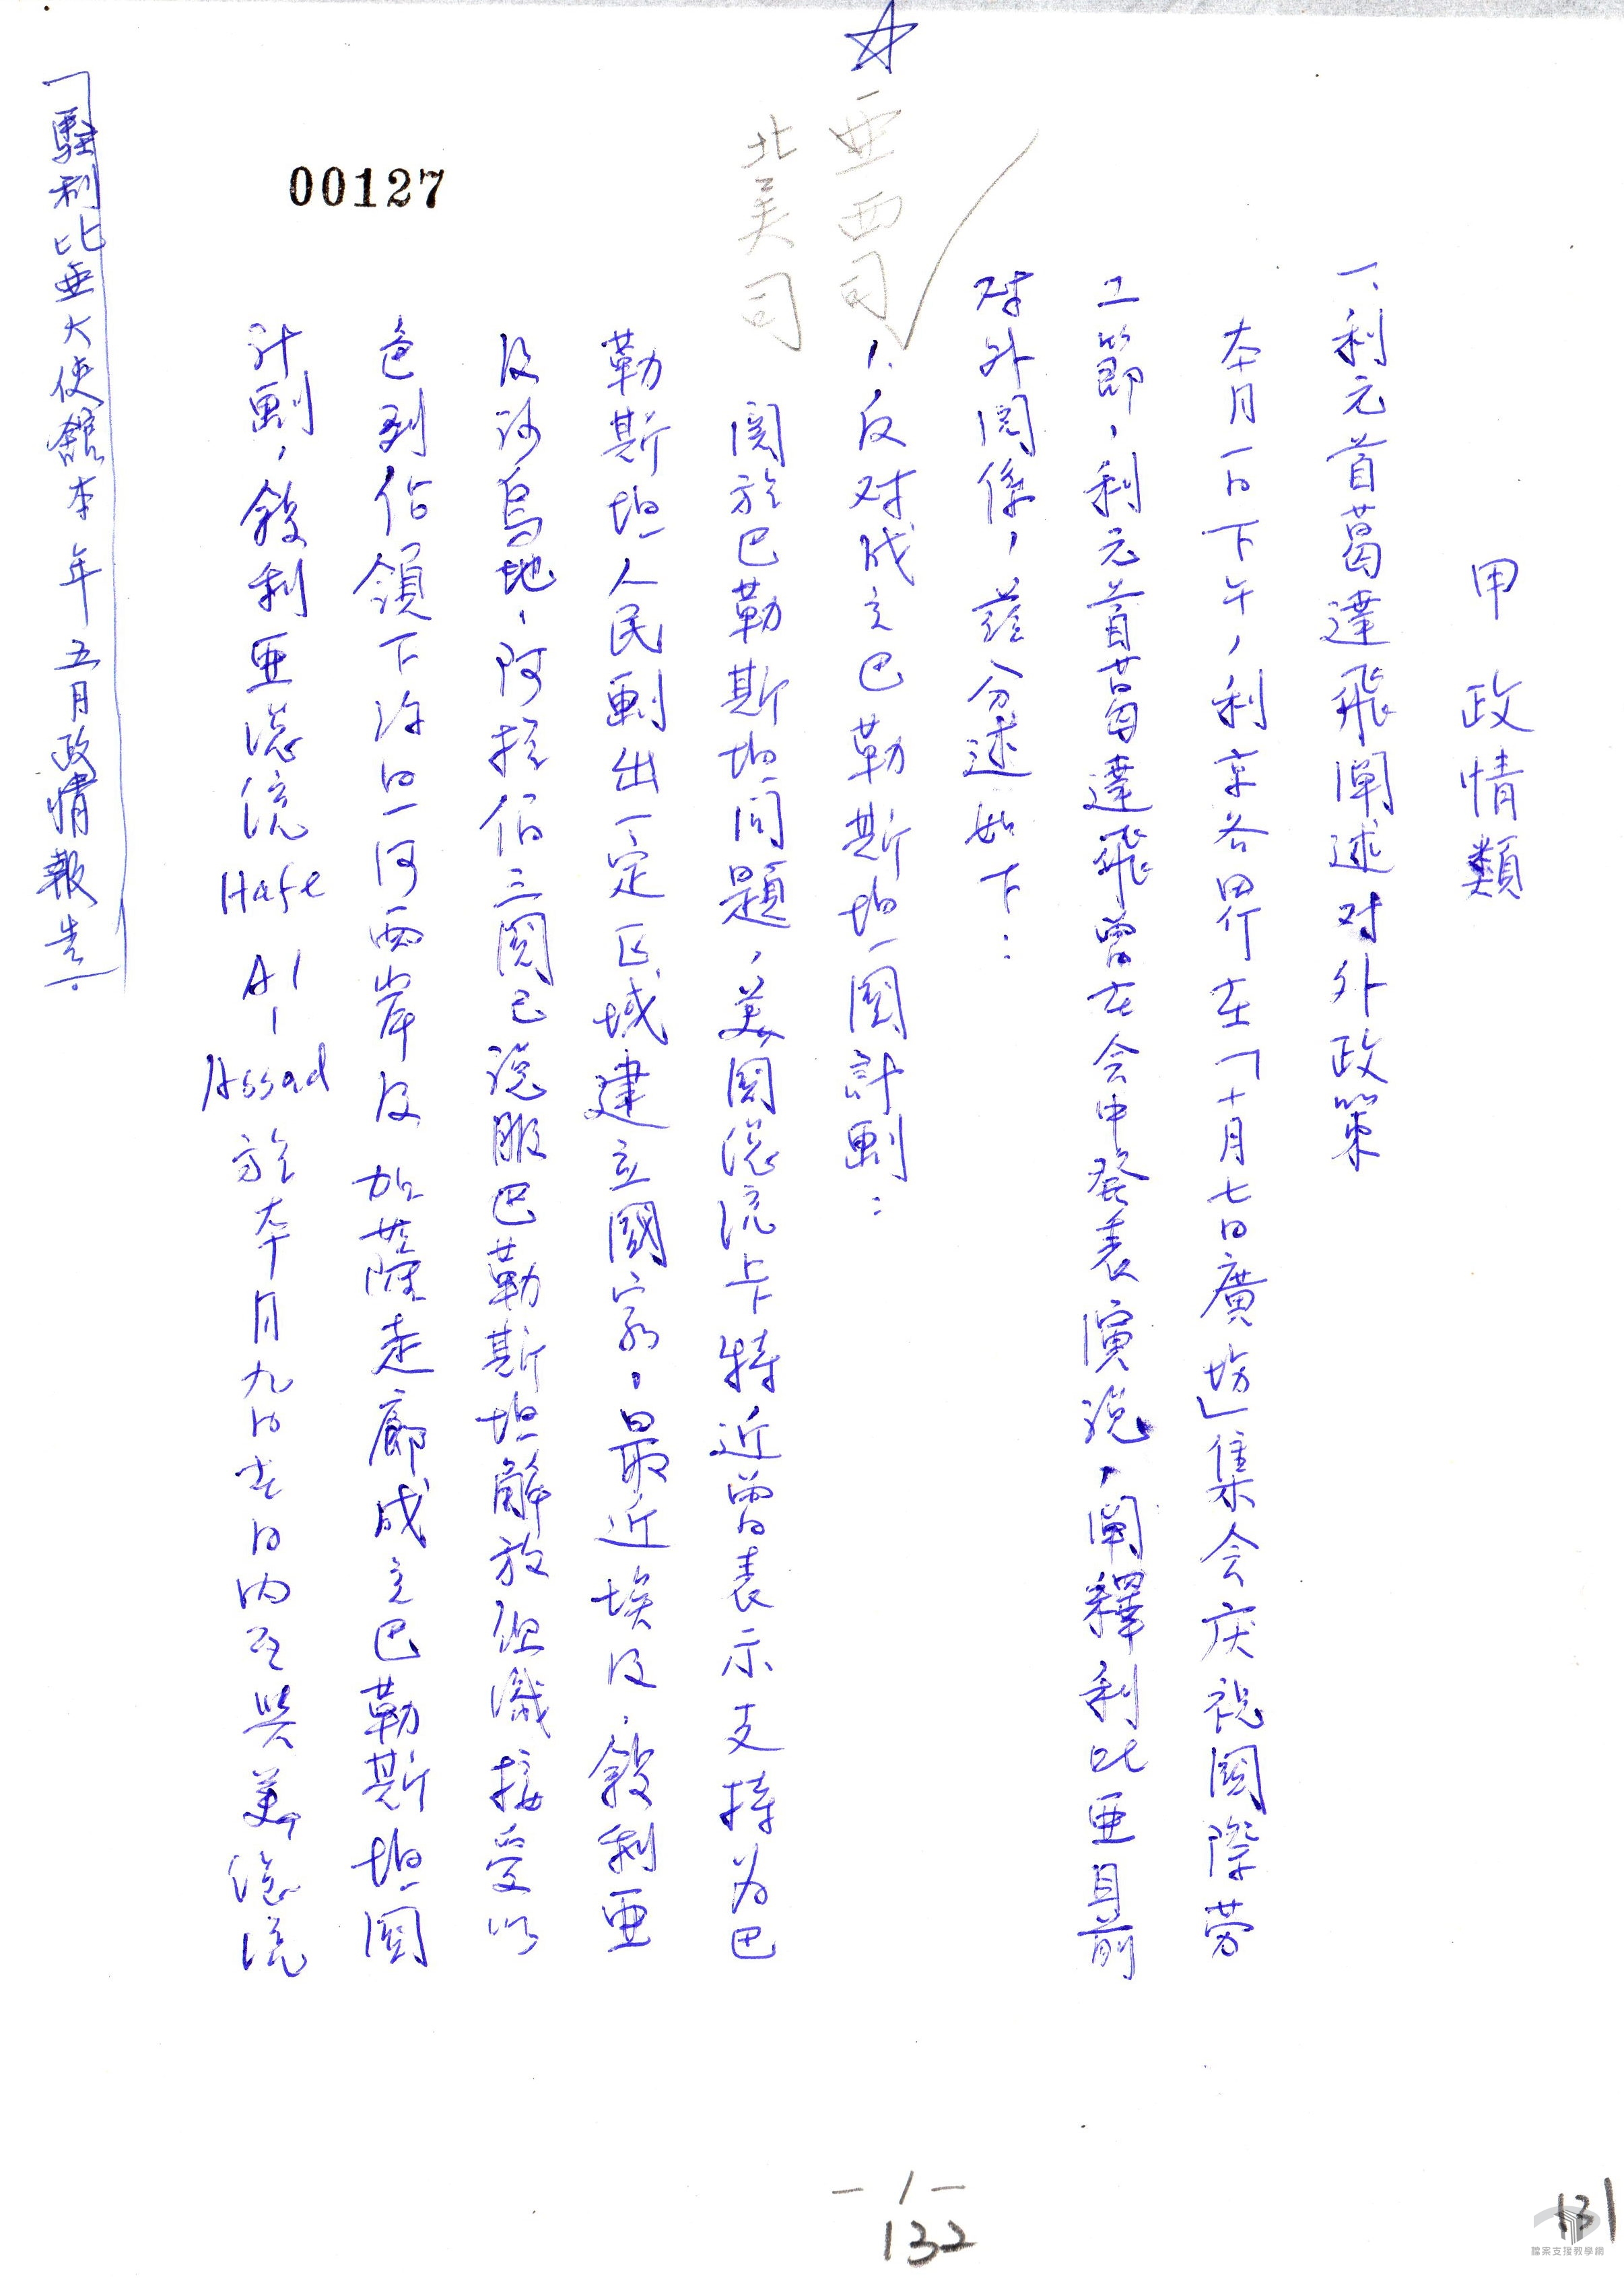 甲 政情類
一、利元首葛達飛闡述对外政策
本月一日下午，利京各界在「十月七日廣場」集会庆祝国際劳
工節，利元首葛達飛曾在会中発表演説，闡釋利比亜目前
对外関係，茲分述如下：
1. 反对成立巴勒斯坦国計劃：
関於巴勒斯坦问題，美国總統卡特近曾表示支持为巴
勒斯坦人民劃出一定区域建立國家，最近埃及，敍利亜
及沙烏地，阿拉伯三国已説服巴勒斯坦解放组織接受以
色列佔領下約旦河西岸及加薩走廊成立巴勒斯坦国
計劃，敍利亜總統 Hafe Al-Assad 於本月九日在日内瓦與美總統
「駐利比亜大使舘本年五月政情報告」
亜西司
北美司
00127
-1-
132
131
檔案支援教學網